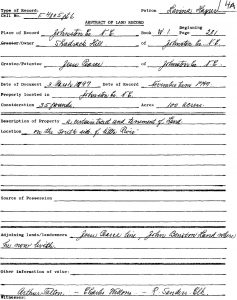 Type of Record.
Patron
4A
Call No.
ABSTRACT OF LAND RECORD
Beginning
Place of Record Johnston Co N.C. Book W 1 Page 281
Grantor/Owner Shadrack Hill of Johnston Co N.C.
Grantee/Patentee Jesse Pearce of Johnston Co N.C.
Date of Document 3 March Date of Record November term
Property located in Johnston Co N.C.
Consideration 25 pounds Acres 100 acres
Description of Property a certain tract and tenement of Land
Location on the South side of little River
Source of Possession
Adjoining lands/landowners Jesse line, John Land where
he now liveth
Other information of value:
Arthur - Charles - Sanders
Witnesses: